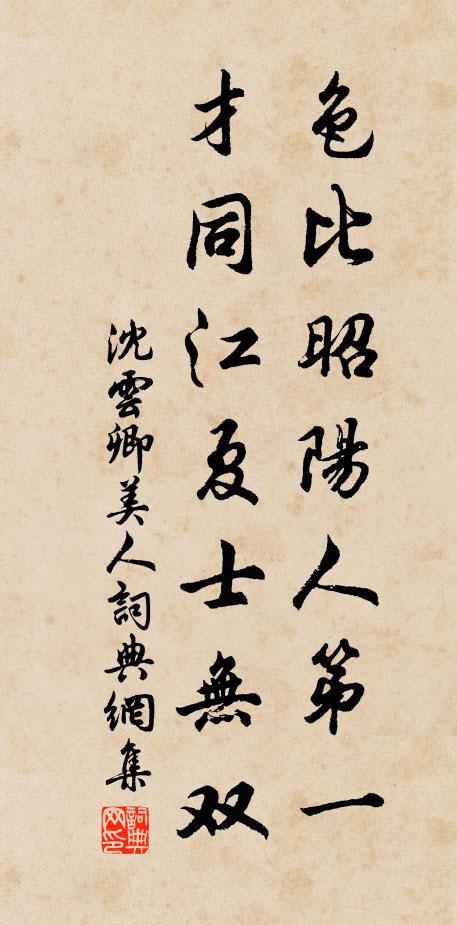 色比昭陽人第一
才同江夏士無双
沈雲卿美人詞典網集
詞典网印